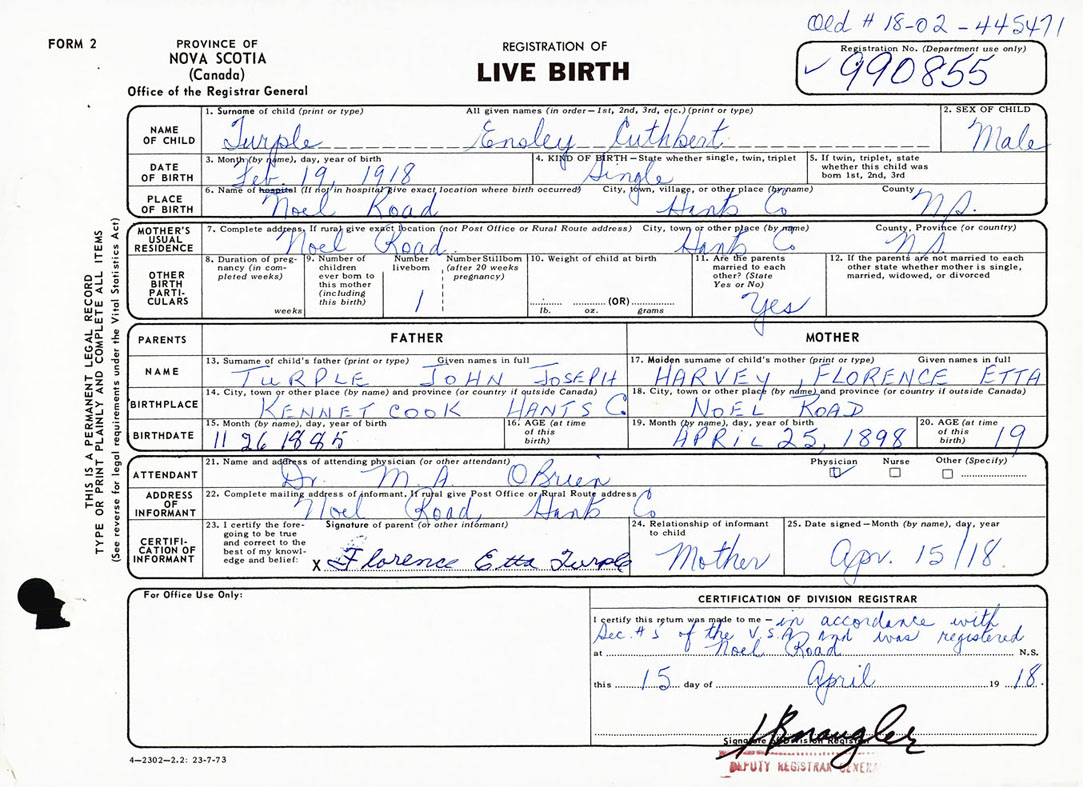 Old # 18-02-445471
FORM 2
PROVINCE OF
NOVA SCOTIA
(Canada)
Office of the Registrar General
REGISTRATION OF
LIVE BIRTH
Registration No. (Department use only)
✓ 990855
NAME OF CHILD
1. Surname of child (print or type) All given names (in order—1st, 2nd, 3rd, etc.) (print or type)
Turple Ensley Cuthbert
2. SEX OF CHILD
Male
DATE OF BIRTH
3. Month (by name), day, year of birth
Feb. 19, 1918
4. KIND OF BIRTH—State whether single, twin, triplet
Single
5. If twin, triplet, state whether this child was born 1st, 2nd, 3rd
PLACE OF BIRTH
6. Name of hospital (If not in hospital give exact location where birth occurred) City, town, village, or other place (by name) County
Noel Road Hants Co N.S.
MOTHER'S USUAL RESIDENCE
7. Complete address, If rural give exact location (not Post Office or Rural Route address) City, town or other place (by name) County, Province (or country)
Noel Road Hants Co N S
OTHER BIRTH PARTICULARS
8. Duration of pregnancy (in completed weeks)
weeks
9. Number of children ever born to this mother (including this birth)
Number liveborn
1
Number Stillborn (after 20 weeks pregnancy)
10. Weight of child at birth
(OR)
lb. oz. grams
11. Are the parents married to each other? (State Yes or No)
Yes
12. If the parents are not married to each other state whether mother is single, married, widowed, or divorced
PARENTS
FATHER
MOTHER
NAME
13. Surname of child's father (print or type) Given names in full
TURPLE JOHN JOSEPH
17. Maiden surname of child's mother (print or type) Given names in full
HARVEY, FLORENCE ETTA
BIRTHPLACE
14. City, town or other place (by name) and province (or country if outside Canada)
KENNETCOOK HANTS C.
18. City, town or other place (by name) and province (or country if outside Canada)
NOEL ROAD
BIRTHDATE
15. Month (by name), day, year of birth
11 26 1885
16. AGE (at time of this birth)
19. Month (by name), day, year of birth
APRIL 25, 1898
20. AGE (at time of this birth)
19
ATTENDANT
21. Name and address of attending physician (or other attendant)
Dr. M. A. OBrien
Physician Nurse Other (Specify)
ADDRESS OF INFORMANT
22. Complete mailing address of informant, If rural give Post Office or Rural Route address
Noel Road, Hants Co
CERTIFICATION OF INFORMANT
23. I certify the foregoing to be true and correct to the best of my knowledge and belief:
Signature of parent (or other informant)
X Florence Etta Turple
24. Relationship of informant to child
Mother
25. Date signed—Month (by name), day, year
Apr. 15/18.
For Office Use Only:
CERTIFICATION OF DIVISION REGISTRAR
I certify this return was made to me — in accordance with
Sec. # 5 of the V.S.A and was registered
at Noel Road N.S.
this 15 day of April 19 18.
Signature of Division Registrar
DEPUTY REGISTRAR GENERAL
4—2302—2.2: 23-7-73
THIS IS A PERMANENT LEGAL RECORD
TYPE OR PRINT PLAINLY AND COMPLETE ALL ITEMS
(See reverse for legal requirements under the Vital Statistics Act)